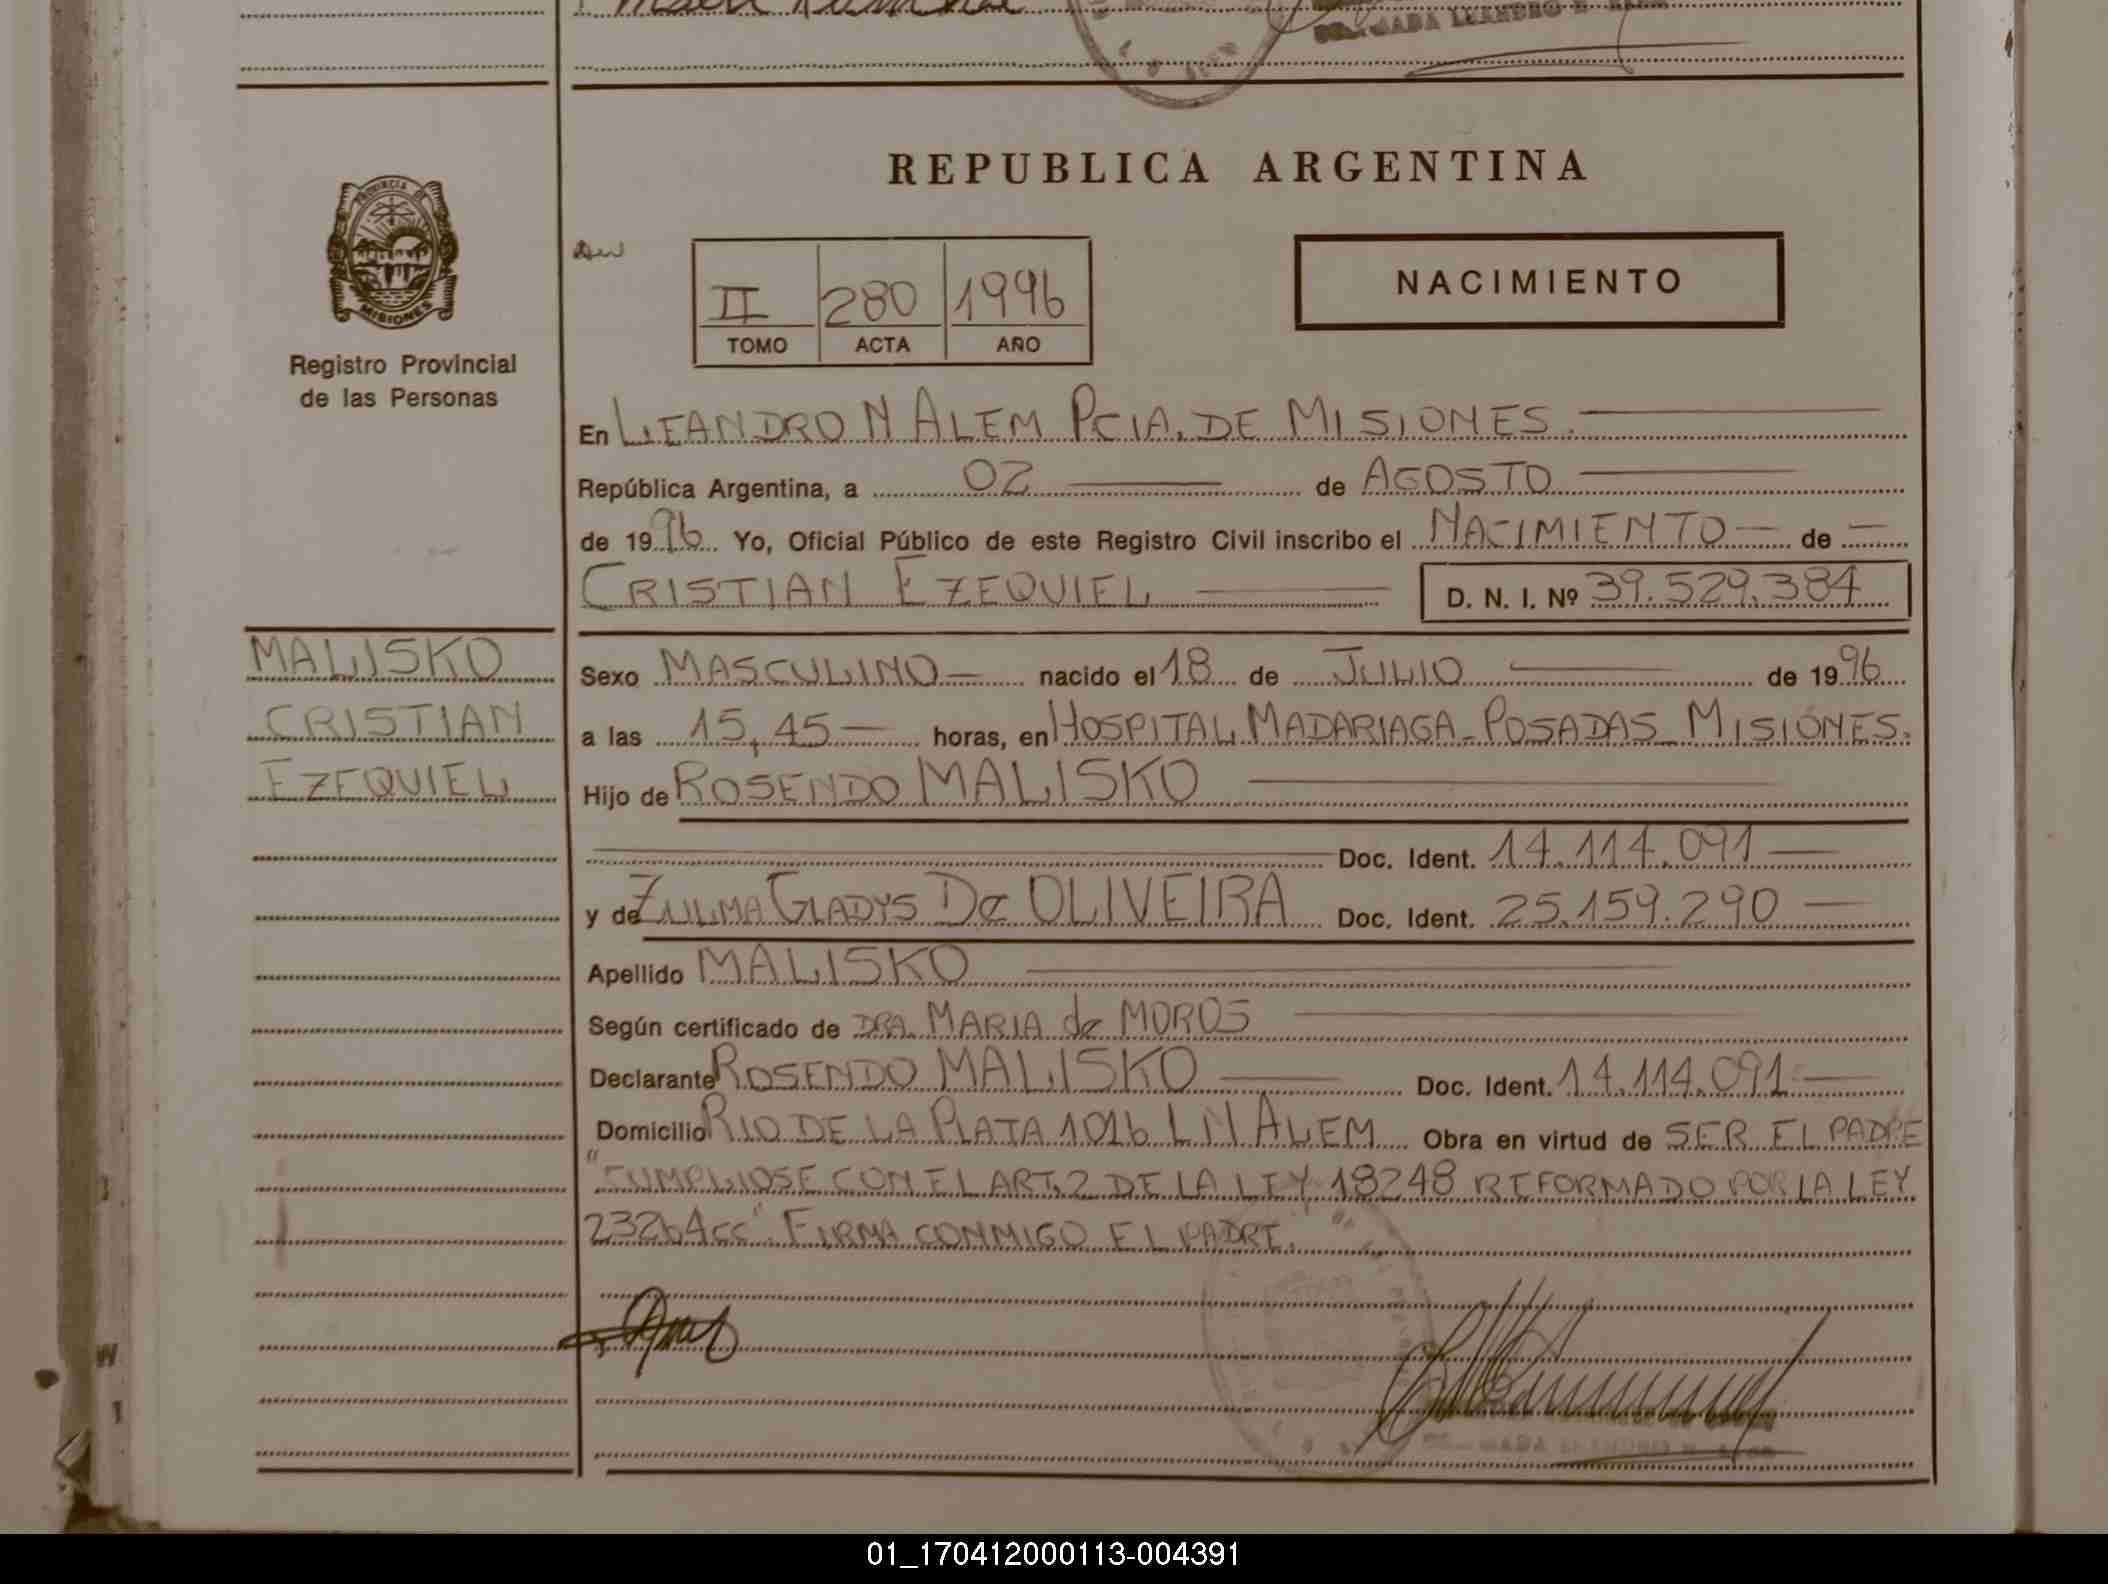 REPUBLICA ARGENTINA
PROVINCIA DE
MISIONES
Registro Provincial
de las Personas
II 280 1996
TOMO ACTA AÑO
NACIMIENTO
En LEANDRO N ALEM PCIA. DE MISIONES.
República Argentina, a 02 de AGOSTO
de 1996 Yo, Oficial Público de este Registro Civil inscribo el NACIMIENTO de
CRISTIAN EZEQUIEL D. N. I. Nº 39.529.384
MALISKO
CRISTIAN
EZEQUIEL
Sexo MASCULINO nacido el 18 de JULIO de 1996
a las 15,45 horas, en HOSPITAL MADARIAGA - POSADAS - MISIONES.
Hijo de ROSENDO MALISKO
Doc. Ident. 14.114.091
y de ZULMA GLADYS De OLIVEIRA Doc. Ident. 25.159.290
Apellido MALISKO
Según certificado de DRA. MARIA de MOROS
Declarante ROSENDO MALISKO Doc. Ident. 14.114.091
Domicilio RIO DE LA PLATA 1016 L N ALEM Obra en virtud de SER EL PADRE
"CUMPLIOSE CON EL ART. 2 DE LA LEY 18248 REFORMADO POR LA LEY
23264 cc". FIRMA CONMIGO EL PADRE.
01_170412000113-004391